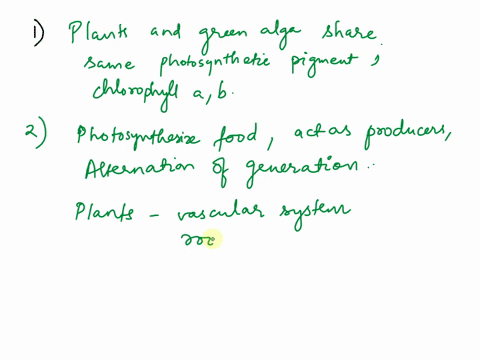 1) Plants and green alga share
same photosynthetic pigment,
chlorophyll a, b.
2) Photosynthesize food, act as producers,
Alternation of generation..
Plants - vascular system
roo